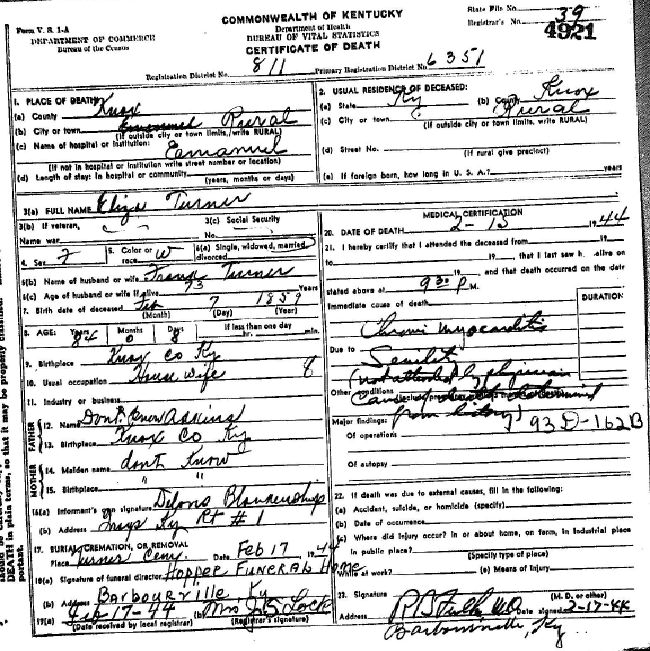 Form V. S. 1-A
DEPARTMENT OF COMMERCE
Bureau of the Census
COMMONWEALTH OF KENTUCKY
Department of Health
BUREAU OF VITAL STATISTICS
CERTIFICATE OF DEATH
State File No. 39
Registrar's No. 4921
Registration District No. 811 Primary Registration District No. 6351
1. PLACE OF DEATH
(a) County Knox
(b) City or town Rural
(If outside city or town limits, write RURAL)
(c) Name of hospital or institution: Eamanuel
(If not in hospital or institution write street number or location)
(d) Length of stay: In hospital or community
(years, months or days)
2. USUAL RESIDENCE OF DECEASED:
(a) State Ky (b) County Knox
(c) City or town Rural
(If outside city or town limits, write RURAL)
(d) Street No.
(If rural give precinct)
(e) If foreign born, how long in U. S. A.? years
3(a) FULL NAME Turner
3(b) If veteran, 3(c) Social Security
Name war No.
4. Sex F 5. Color or race W 6(a) Single, widowed, married, divorced
6(b) Name of husband or wife Frank Turner
6(c) Age of husband or wife if alive 73 Years
7. Birth date of deceased Feb 7 1859
(Month) (Day) (Year)
8. AGE: Years 84 Months 0 Days 8 If less than one day hr. min.
9. Birthplace Knox Co Ky
10. Usual occupation House wife 8
11. Industry or business
FATHER
12. Name Dont Know Adkins
13. Birthplace Knox Co Ky
MOTHER
14. Maiden name dont Know
15. Birthplace " "
16(a) Informant's own signature Blankenship
(b) Address Ky Rt # 1
17. BURIAL, CREMATION, OR REMOVAL
Place Turner Cem. Date Feb 17 1944
18(a) Signature of funeral director Hopper Funeral Home
(b) Address Barbourville Ky
19(a) Feb-17-44 (b) Mrs J S Locke
(Date received by local registrar) (Registrar's signature)
MEDICAL CERTIFICATION
20. DATE OF DEATH 2-15 1944
21. I hereby certify that I attended the deceased from 19
to 19 that I last saw h. alive on
19 and that death occurred on the date
stated above at 930 P M.
Immediate cause of death DURATION
Chronic Myocarditis
Due to Senility
(not attended by physician
Other conditions
determined
from history)
Major findings: 93D-162B
Of operations
Of autopsy
22. If death was due to external causes, fill in the following:
(a) Accident, suicide, or homicide (specify)
(b) Date of occurrence
(c) Where did injury occur? In or about home, on farm, in industrial place
in public place?
(Specify type of place)
While at work? (e) Means of Injury
23. Signature MD
(M. D. or other)
Address Date signed 2-17-44
Barbourville, Ky
DEATH in plain terms, so that it may be properly classified.
portant.